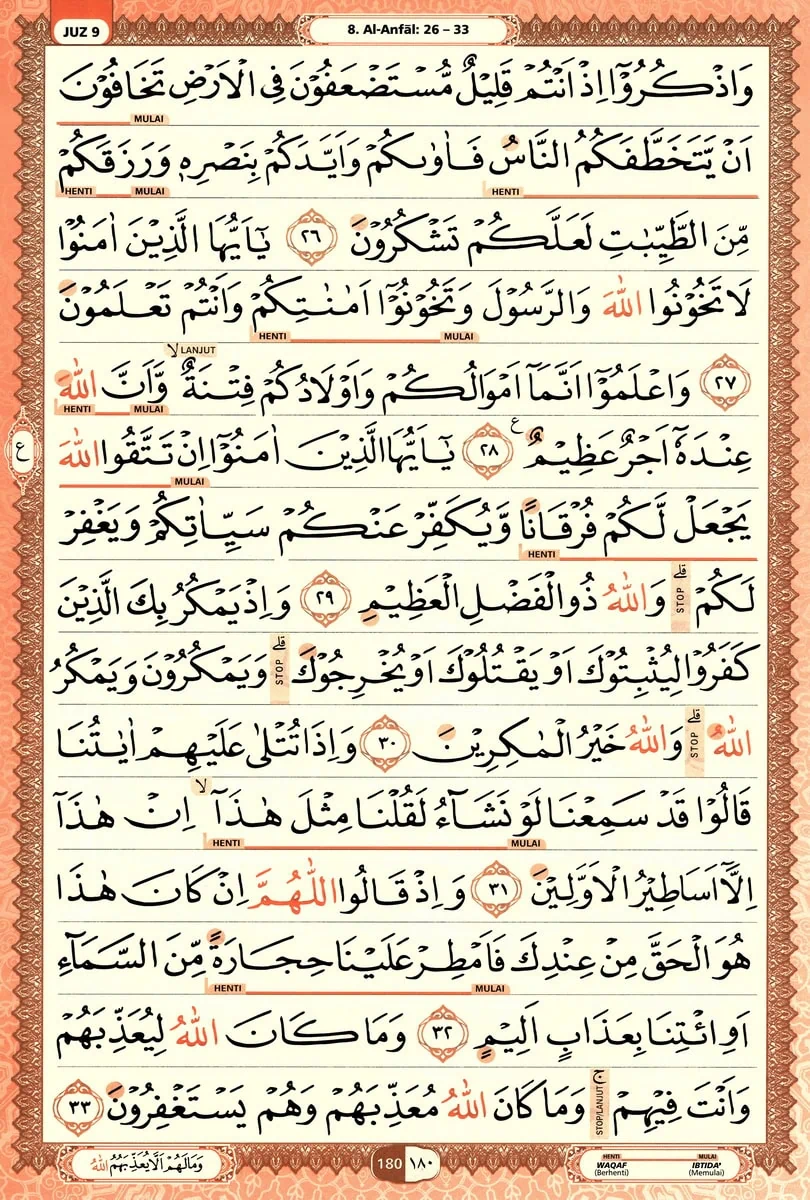 JUZ 9
8. Al-Anfāl: 26 – 33
وَاذْكُرُوْٓا اِذْ اَنْتُمْ قَلِيْلٌ مُّسْتَضْعَفُوْنَ فِى الْاَرْضِ تَخَافُوْنَ
MULAI
اَنْ يَّتَخَطَّفَكُمُ النَّاسُ فَاٰوٰىكُمْ وَاَيَّدَكُمْ بِنَصْرِهٖ وَرَزَقَكُمْ
HENTI MULAI HENTI
مِّنَ الطَّيِّبٰتِ لَعَلَّكُمْ تَشْكُرُوْنَ ٢٦ يٰٓاَيُّهَا الَّذِيْنَ اٰمَنُوْا
لَا تَخُوْنُوا اللّٰهَ وَالرَّسُوْلَ وَتَخُوْنُوْٓا اَمٰنٰتِكُمْ وَاَنْتُمْ تَعْلَمُوْنَ
HENTI MULAI
لا LANJUT
٢٧ وَاعْلَمُوْٓا اَنَّمَآ اَمْوَالُكُمْ وَاَوْلَادُكُمْ فِتْنَةٌ وَّاَنَّ اللّٰهَ
HENTI MULAI
عِنْدَهٗٓ اَجْرٌ عَظِيْمٌ ع ٢٨ يٰٓاَيُّهَا الَّذِيْنَ اٰمَنُوْٓا اِنْ تَتَّقُوا اللّٰهَ
ع
MULAI
يَجْعَلْ لَّكُمْ فُرْقَانًا وَّيُكَفِّرْ عَنْكُمْ سَيِّاٰتِكُمْ وَيَغْفِرْ
HENTI
لَكُمْ ۗ STOP وَاللّٰهُ ذُو الْفَضْلِ الْعَظِيْمِ ٢٩ وَاِذْ يَمْكُرُ بِكَ الَّذِيْنَ
كَفَرُوْا لِيُثْبِتُوْكَ اَوْ يَقْتُلُوْكَ اَوْ يُخْرِجُوْكَ ۗ STOP وَيَمْكُرُوْنَ وَيَمْكُرُ
اللّٰهُ ۗ STOP وَاللّٰهُ خَيْرُ الْمٰكِرِيْنَ ٣٠ وَاِذَا تُتْلٰى عَلَيْهِمْ اٰيٰتُنَا
قَالُوْا قَدْ سَمِعْنَا لَوْ نَشَاۤءُ لَقُلْنَا مِثْلَ هٰذَآ ۙ اِنْ هٰذَآ
HENTI MULAI
اِلَّآ اَسَاطِيْرُ الْاَوَّلِيْنَ ٣١ وَاِذْ قَالُوا اللّٰهُمَّ اِنْ كَانَ هٰذَا
هُوَ الْحَقَّ مِنْ عِنْدِكَ فَاَمْطِرْ عَلَيْنَا حِجَارَةً مِّنَ السَّمَاۤءِ
HENTI MULAI
اَوِ ائْتِنَا بِعَذَابٍ اَلِيْمٍ ٣٢ وَمَا كَانَ اللّٰهُ لِيُعَذِّبَهُمْ
وَاَنْتَ فِيْهِمْ ۚ STOP/LANJUT وَمَا كَانَ اللّٰهُ مُعَذِّبَهُمْ وَهُمْ يَسْتَغْفِرُوْنَ ٣٣
وَمَا لَهُمْ اَلَّا يُعَذِّبَهُمُ اللّٰهُ
180 ١٨٠
HENTI MULAI
WAQAF IBTIDA'
(Berhenti) (Memulai)